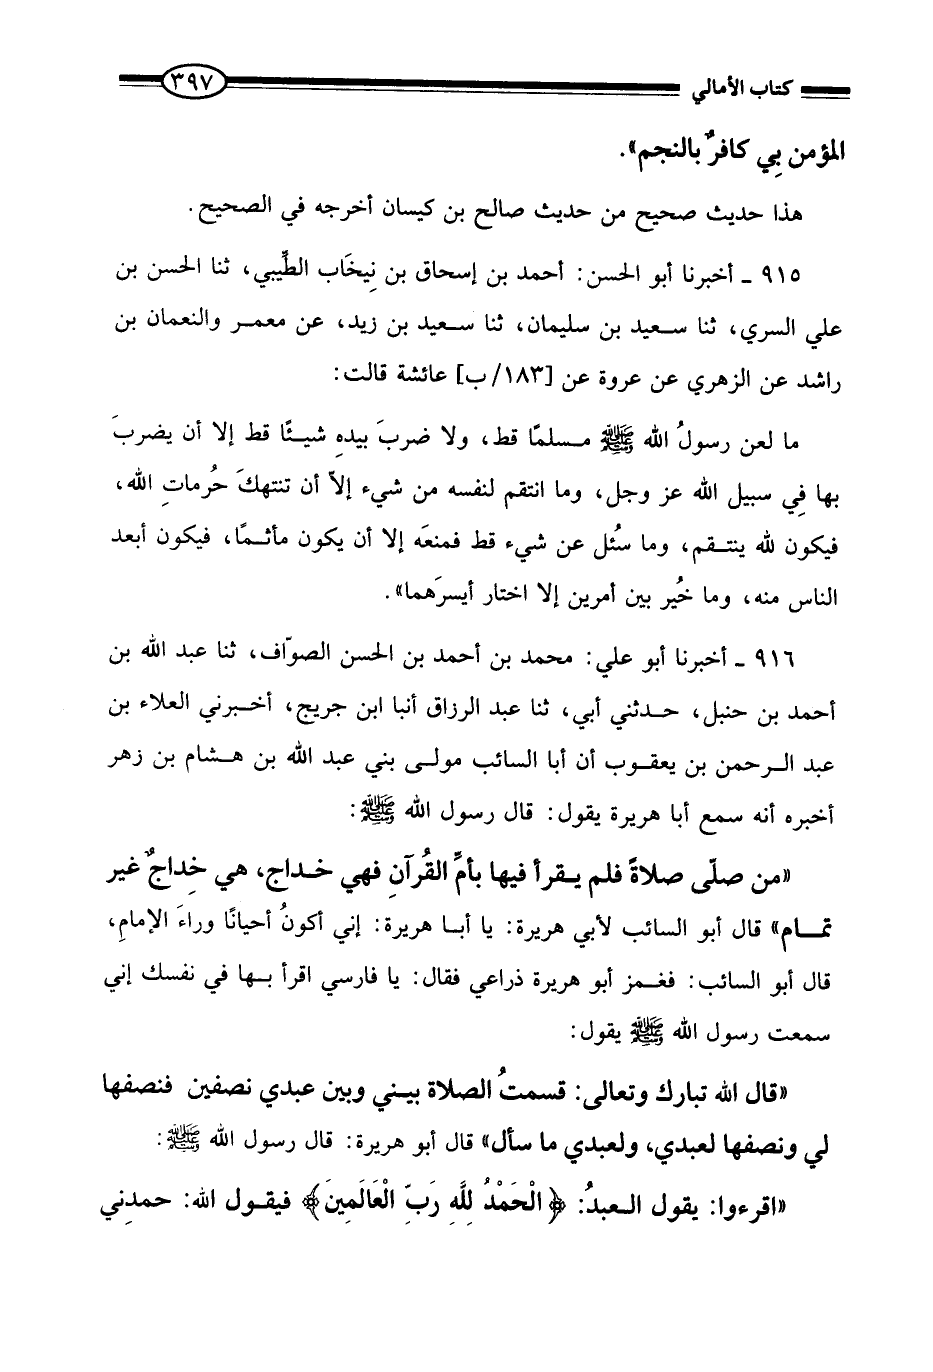 كتاب الأمالي ٣٩٧
المؤمن بِي كافرٌ بالنجم».
هذا حديث صحيح من حديث صالح بن كيسان أخرجه في الصحيح.
٩١٥ ـ أخبرنا أبو الحسن: أحمد بن إسحاق بن نِيخَاب الطِّيبي، ثنا الحسن بن
علي السري، ثنا سعيد بن سليمان، ثنا سعيد بن زيد، عن معمر والنعمان بن
راشد عن الزهري عن عروة عن [١٨٣/ ب] عائشة قالت:
ما لعن رسولُ الله ﷺ مسلمًا قط، ولا ضربَ بيدهِ شيئًا قط إلا أن يضربَ
بها فِي سبيل الله عز وجل، وما انتقم لنفسه من شيء إلاّ أن تنتهكَ حُرماتِ الله،
فيكون لله ينتقم، وما سئُل عن شيء قط فمنعَه إلا أن يكون مأثمًا، فيكون أبعد
الناس منه، وما خُير بين أمرين إلا اختار أيسرَهما».
٩١٦ ـ أخبرنا أبو علي: محمد بن أحمد بن الحسن الصوّاف، ثنا عبد الله بن
أحمد بن حنبل، حدثني أبي، ثنا عبد الرزاق أنبا ابن جريج، أخبرني العلاء بن
عبد الرحمن بن يعقوب أن أبا السائب مولى بني عبد الله بن هشام بن زهر
أخبره أنه سمع أبا هريرة يقول: قال رسول الله ﷺ:
«من صلّى صلاةً فلم يقرأ فيها بأمِّ القُرآنِ فهي خداج، هي خِداجٌ غير
تمام» قال أبو السائب لأبي هريرة: يا أبا هريرة: إني أكونُ أحيانًا وراءَ الإمامِ،
قال أبو السائب: فغمز أبو هريرة ذراعي فقال: يا فارسي اقرأ بها في نفسك إني
سمعت رسول الله ﷺ يقول:
«قال الله تبارك وتعالى: قسمتُ الصلاة بيني وبين عبدي نصفين فنصفها
لي ونصفها لعبدي، ولعبدي ما سأل» قال أبو هريرة: قال رسول الله ﷺ:
«اقرءوا: يقول العبدُ: ﴿الْحَمْدُ لِلَّهِ رَبِّ الْعَالَمِينَ﴾ فيقول الله: حمدنِي